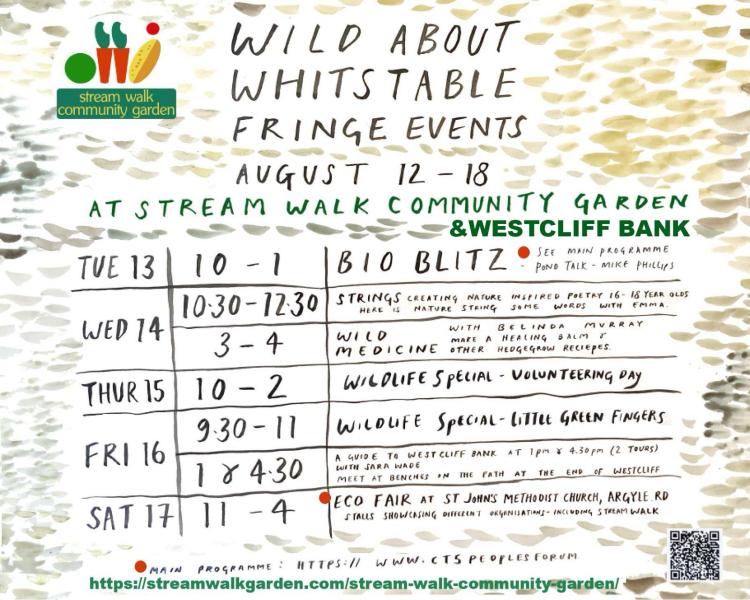 stream walk
community garden
WILD ABOUT
WHITSTABLE
FRINGE EVENTS
AUGUST 12 - 18
AT STREAM WALK COMMUNITY GARDEN
&WESTCLIFF BANK
TUE 13
10 - 1
BIO BLITZ
SEE MAIN PROGRAMME
- POND TALK - MIKE PHILLIPS
WED 14
10.30-12.30
STRINGS CREATING NATURE INSPIRED POETRY 16-18 YEAR OLDS
HERE IS NATURE STRING SOME WORDS WITH EMMA.
3 - 4
WILD
MEDICINE
WITH BELINDA MURRAY
MAKE A HEALING BALM &
OTHER HEDGEGROW RECIEPES.
THUR 15
10 - 2
WILDLIFE SPECIAL - VOLUNTEERING DAY
FRI 16
9.30 - 11
WILDLIFE SPECIAL-LITTLE GREEN FINGERS
1 & 4.30
A GUIDE TO WESTCLIFF BANK AT 1PM & 4.30PM (2 TOURS)
WITH SARA WADE
MEET AT BENCHES ON THE PATH AT THE END OF WESTCLIFF
SAT 17
11 - 4
ECO FAIR AT ST JOHN'S METHODIST CHURCH, ARGYLE RD
STALLS SHOWCASING DIFFERENT ORGANISATIONS-INCLUDING STREAM WALK
MAIN PROGRAMME: HTTPS:// WWW.CT5PEOPLESFORUM
https://streamwalkgarden.com/stream-walk-community-garden/